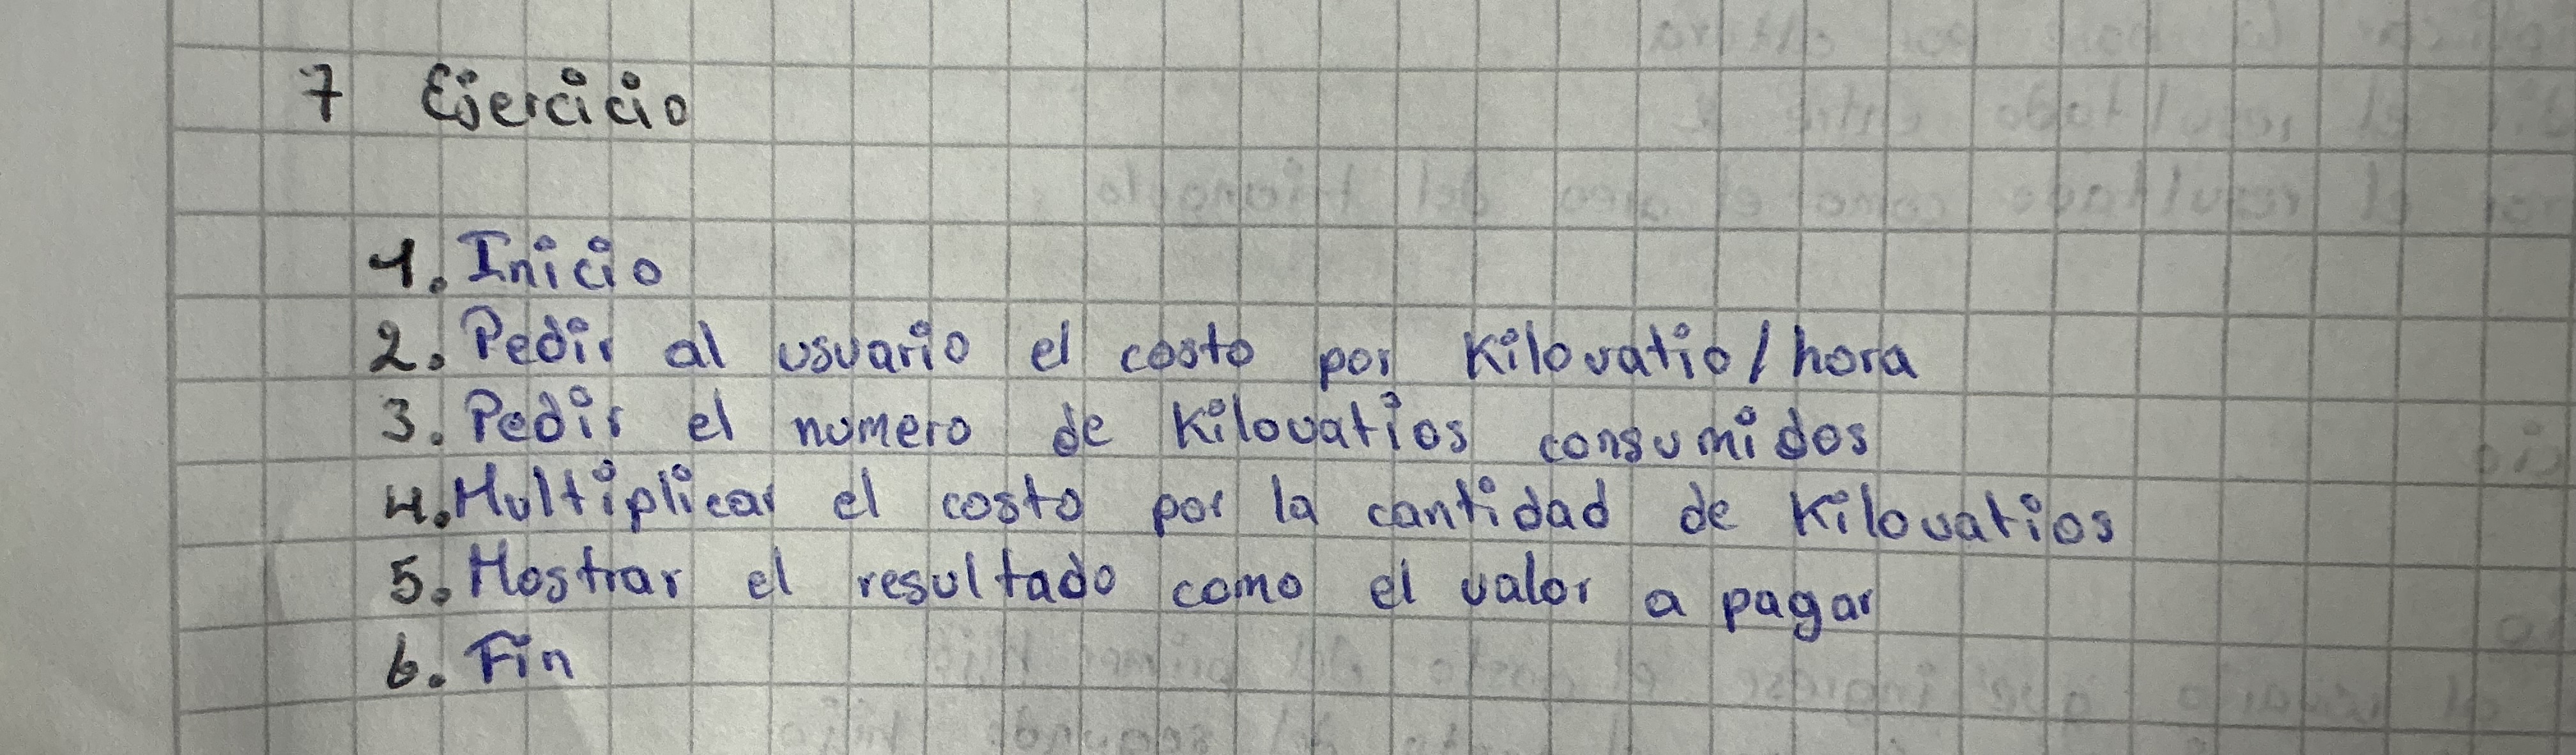 7 Ejercicio
1. Inicio
2. Pedir al usuario el costo por Kilovatio/hora
3. Pedir el numero de Kilovatios consumidos
4. Multiplicar el costo por la cantidad de Kilovatios
5. Mostrar el resultado como el valor a pagar
6. Fin